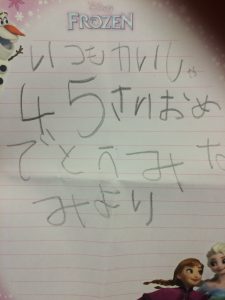 Disney
FROZEN
いつもかいしゃ
45さいおめ
でとうみな
みより